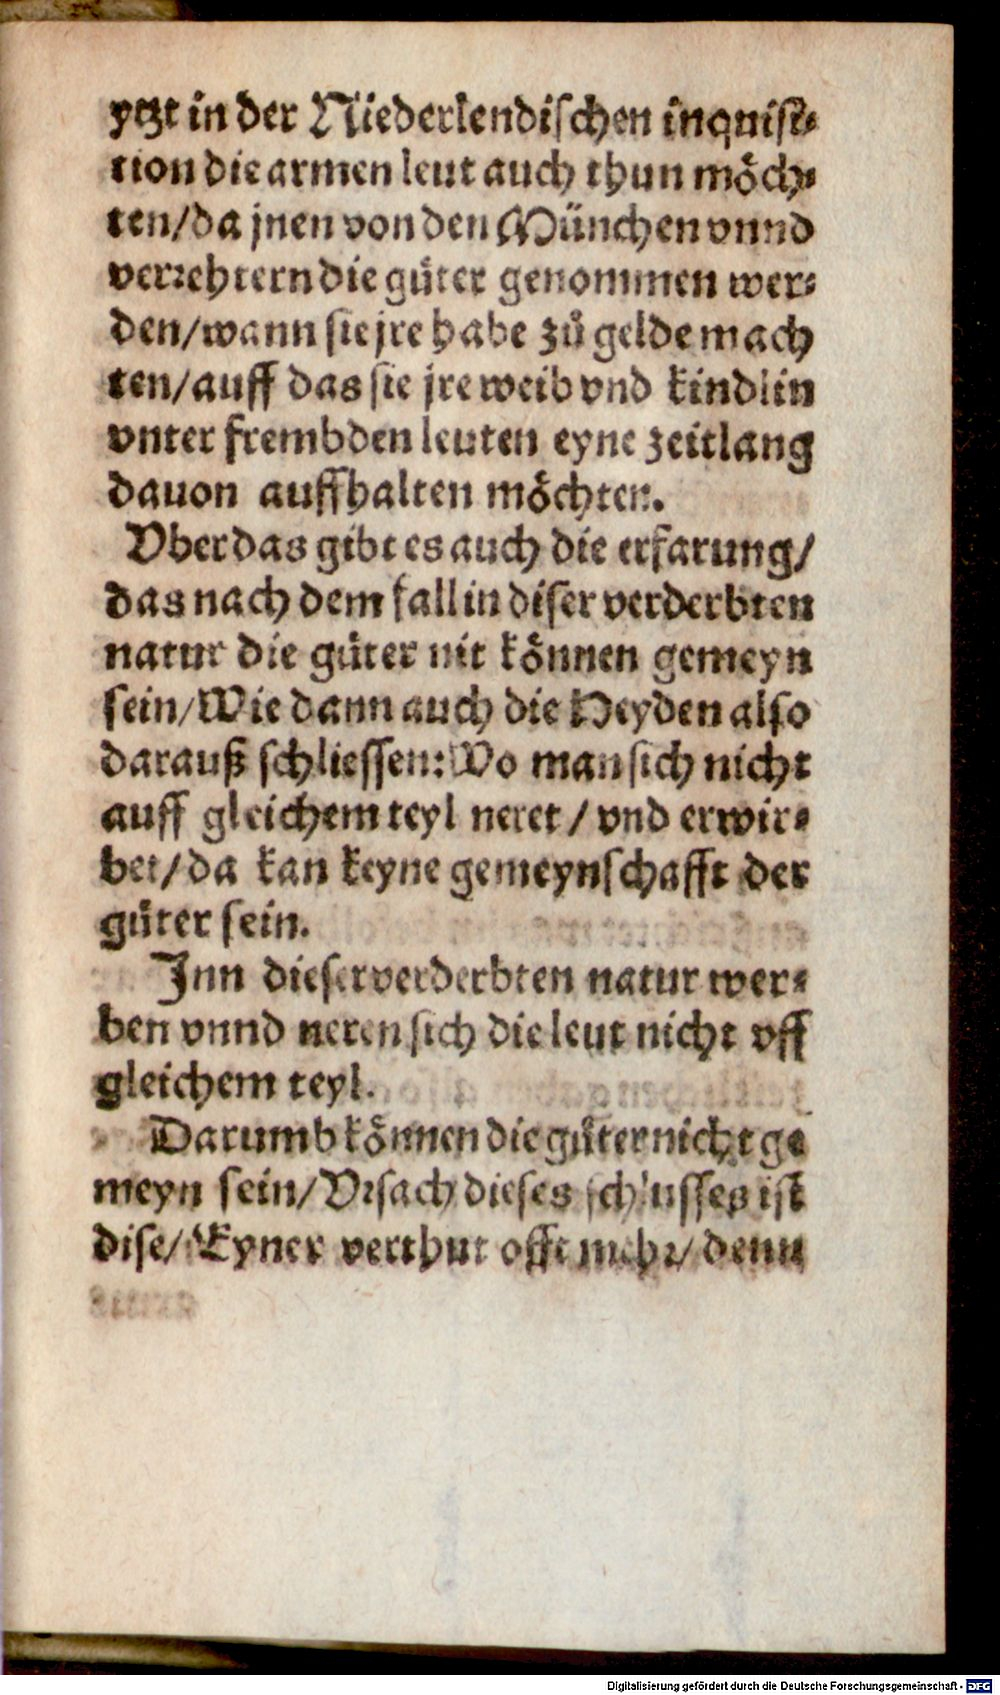 ytzt in der Niederlendischen inquisi-
tion die armen leut auch thun möch-
ten/da jnen von den München vnnd
verrehtern die güter genommen wer-
den/wann sie jre habe zů gelde mach
ten/auff das sie jre weib vnd kindlin
vnter frembden leuten eyne zeitlang
dauon auffhalten möchten.
Vber das gibt es auch die erfarung/
das nach dem fall in diser verderbten
natur die güter nit können gemeyn
sein/Wie dann auch die Heyden also
darauß schliessen: Wo man sich nicht
auff gleichem teyl neret / vnd erwir-
bet/da kan keyne gemeynschafft der
güter sein.
Inn dieser verderbten natur wer-
ben vnnd neren sich die leut nicht vff
gleichem teyl.
Darumb können die güter nicht ge
meyn sein/Vrsach dieses schlusses ist
dise/ Eyner verthut offt mehr/ denn
Digitalisierung gefördert durch die Deutsche Forschungsgemeinschaft - DFG